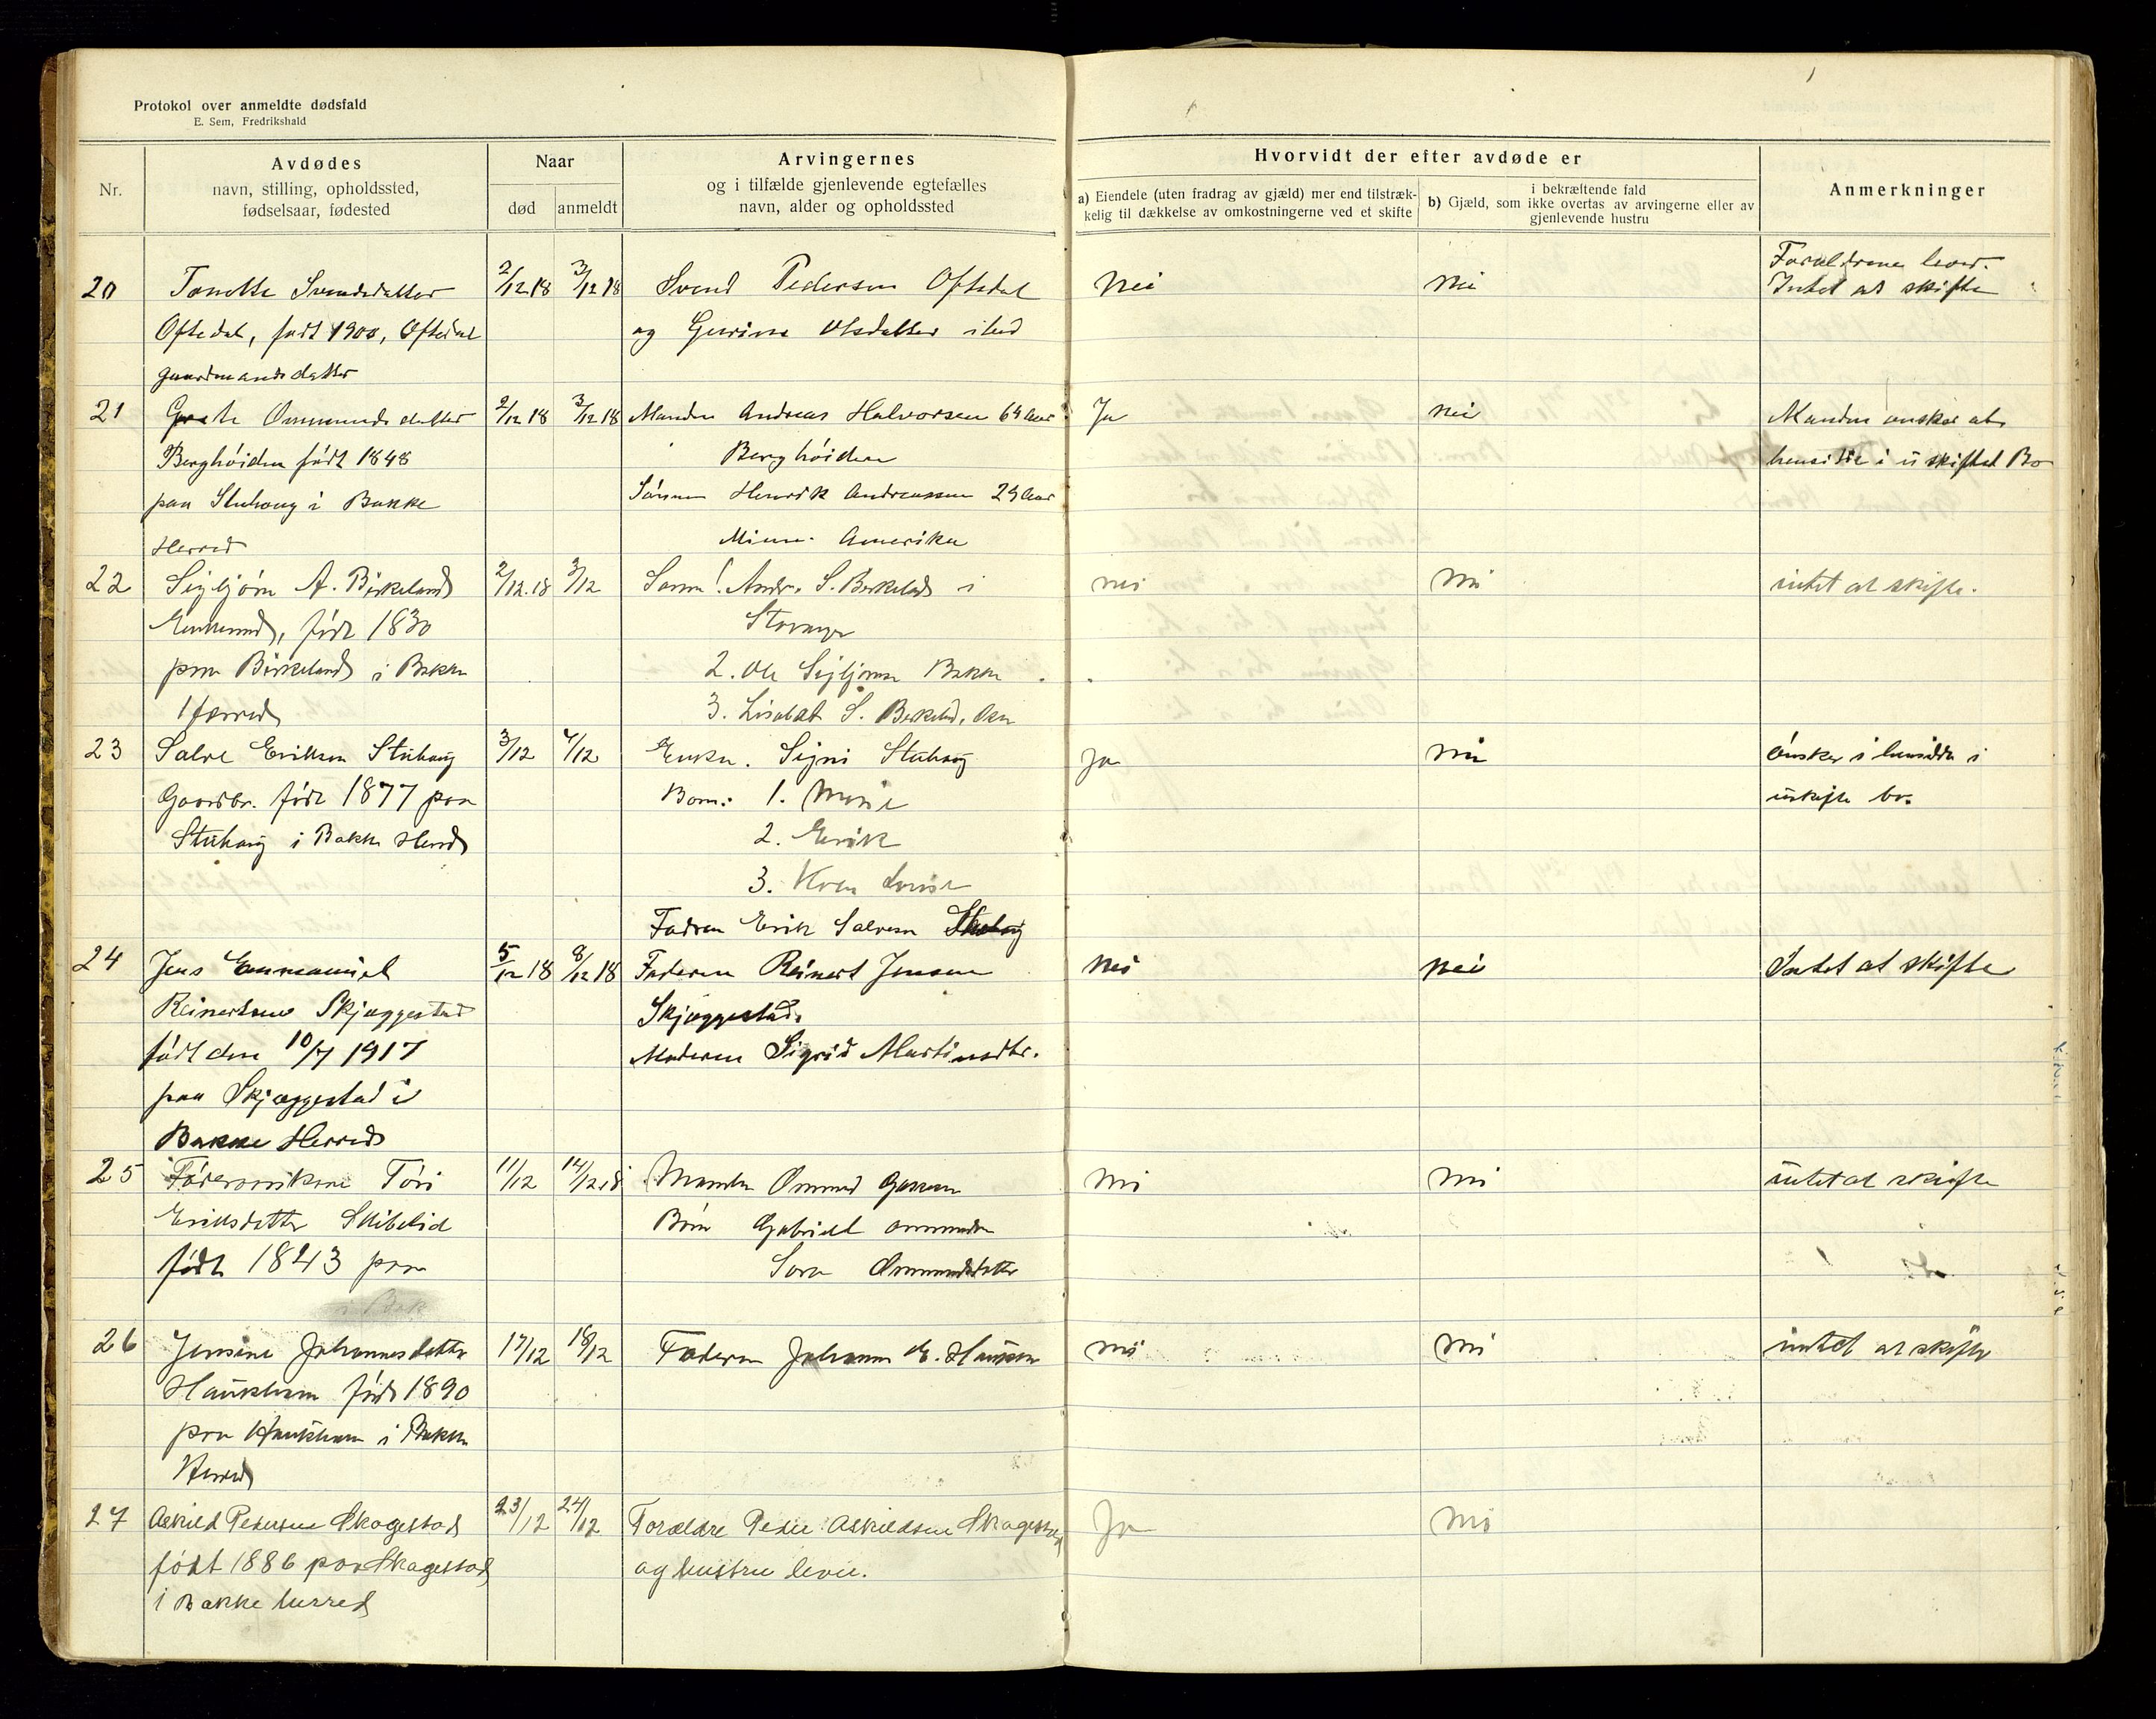 Protokol over anmeldte dødsfald
E. Sem, Fredrikshald
Nr.
Avdødes
navn, stilling, opholdssted,
fødselsaar, fødested
Naar
død
anmeldt
Arvingernes
og i tilfælde gjenlevende egtefælles
navn, alder og opholdssted
Hvorvidt der efter avdøde er
a) Eiendele (uten fradrag av gjæld) mer end tilstræk-
kelig til dækkelse av omkostningerne ved et skifte
i bekræftende fald
b) Gjæld, som ikke overtas av arvingerne eller av
gjenlevende hustru
Anmerkninger
20 Tonette Svendsdatter 2/12 18 3/12 18 Svend Pedersen Oftedal Nei Nei Forældrene lever.
Intet at skifte
Oftedal, født 1900, Oftedal og Gurine Olsdatter ibid
gaardmandsdatter
21 Ommundsdatter 2/12 18 3/12 18 Manden Andreas Halvorsen 64 Aar Ja Nei Manden ønsker at
Berghöiden født 1848 Berghöiden hensidde i uskiftet Bo
paa Stuhaug i Bakke Sönnen Henrik Andreassen 29 Aar
Herred Minn. Amerika
22 Sigbjörn A. Birkeland 2/12.18 3/12 Sönn: Andr. S. Berkeland i nei Nei intet at skifte.
Enkemand, född 1830 Stavanger
paa Birkeland i Bakke 2. Ole Sigbjörnsen Bakke
Herred 3. Lisabet S. Berkeland,
23 Salve Eriksen Stuhaug 3/12 4/12 Enke. Signi Stuhaug Ja Nei Ønsker i hensidde i
Gaardbr. född 1877 paa Born: 1. Marie uskifte bo.
Stuhaug i Bakke Herred 2. Erik
3. Louise
Fadren Erik Salvesen Stuhaug
24 Jens Emmanuel 5/12 18 9/12 18 Faderen Reinert Jensen Nei Nei Intet at skifte
Reinertsen Skjæggestad Skjæggestad.
född den 10/7 1917 Moderen Sigrid Martinsdtr.
paa Skjæggestad i
Bakke Herred
25 Föderaadskone Töri 11/12 14/12.18 Manden Ommund Nei Nei intet at skifte
Eriksdatter Skibelid Börn Gabriel Ommundsen
född 1843 paa Sara Ommundsdatter
i Bak
26 Jensine Johannesdatter 17/12 18/12 Faderen Johannes Nei Nei intet at skifte
född 1890
paa i Bakke
Herred
27 Askild Pedersen Skagestad 23/12 24/12 Forældre Peder Askildsen Skagestad Ja Nei
født 1886 paa Skagestad og hustru lever.
i Bakke herred